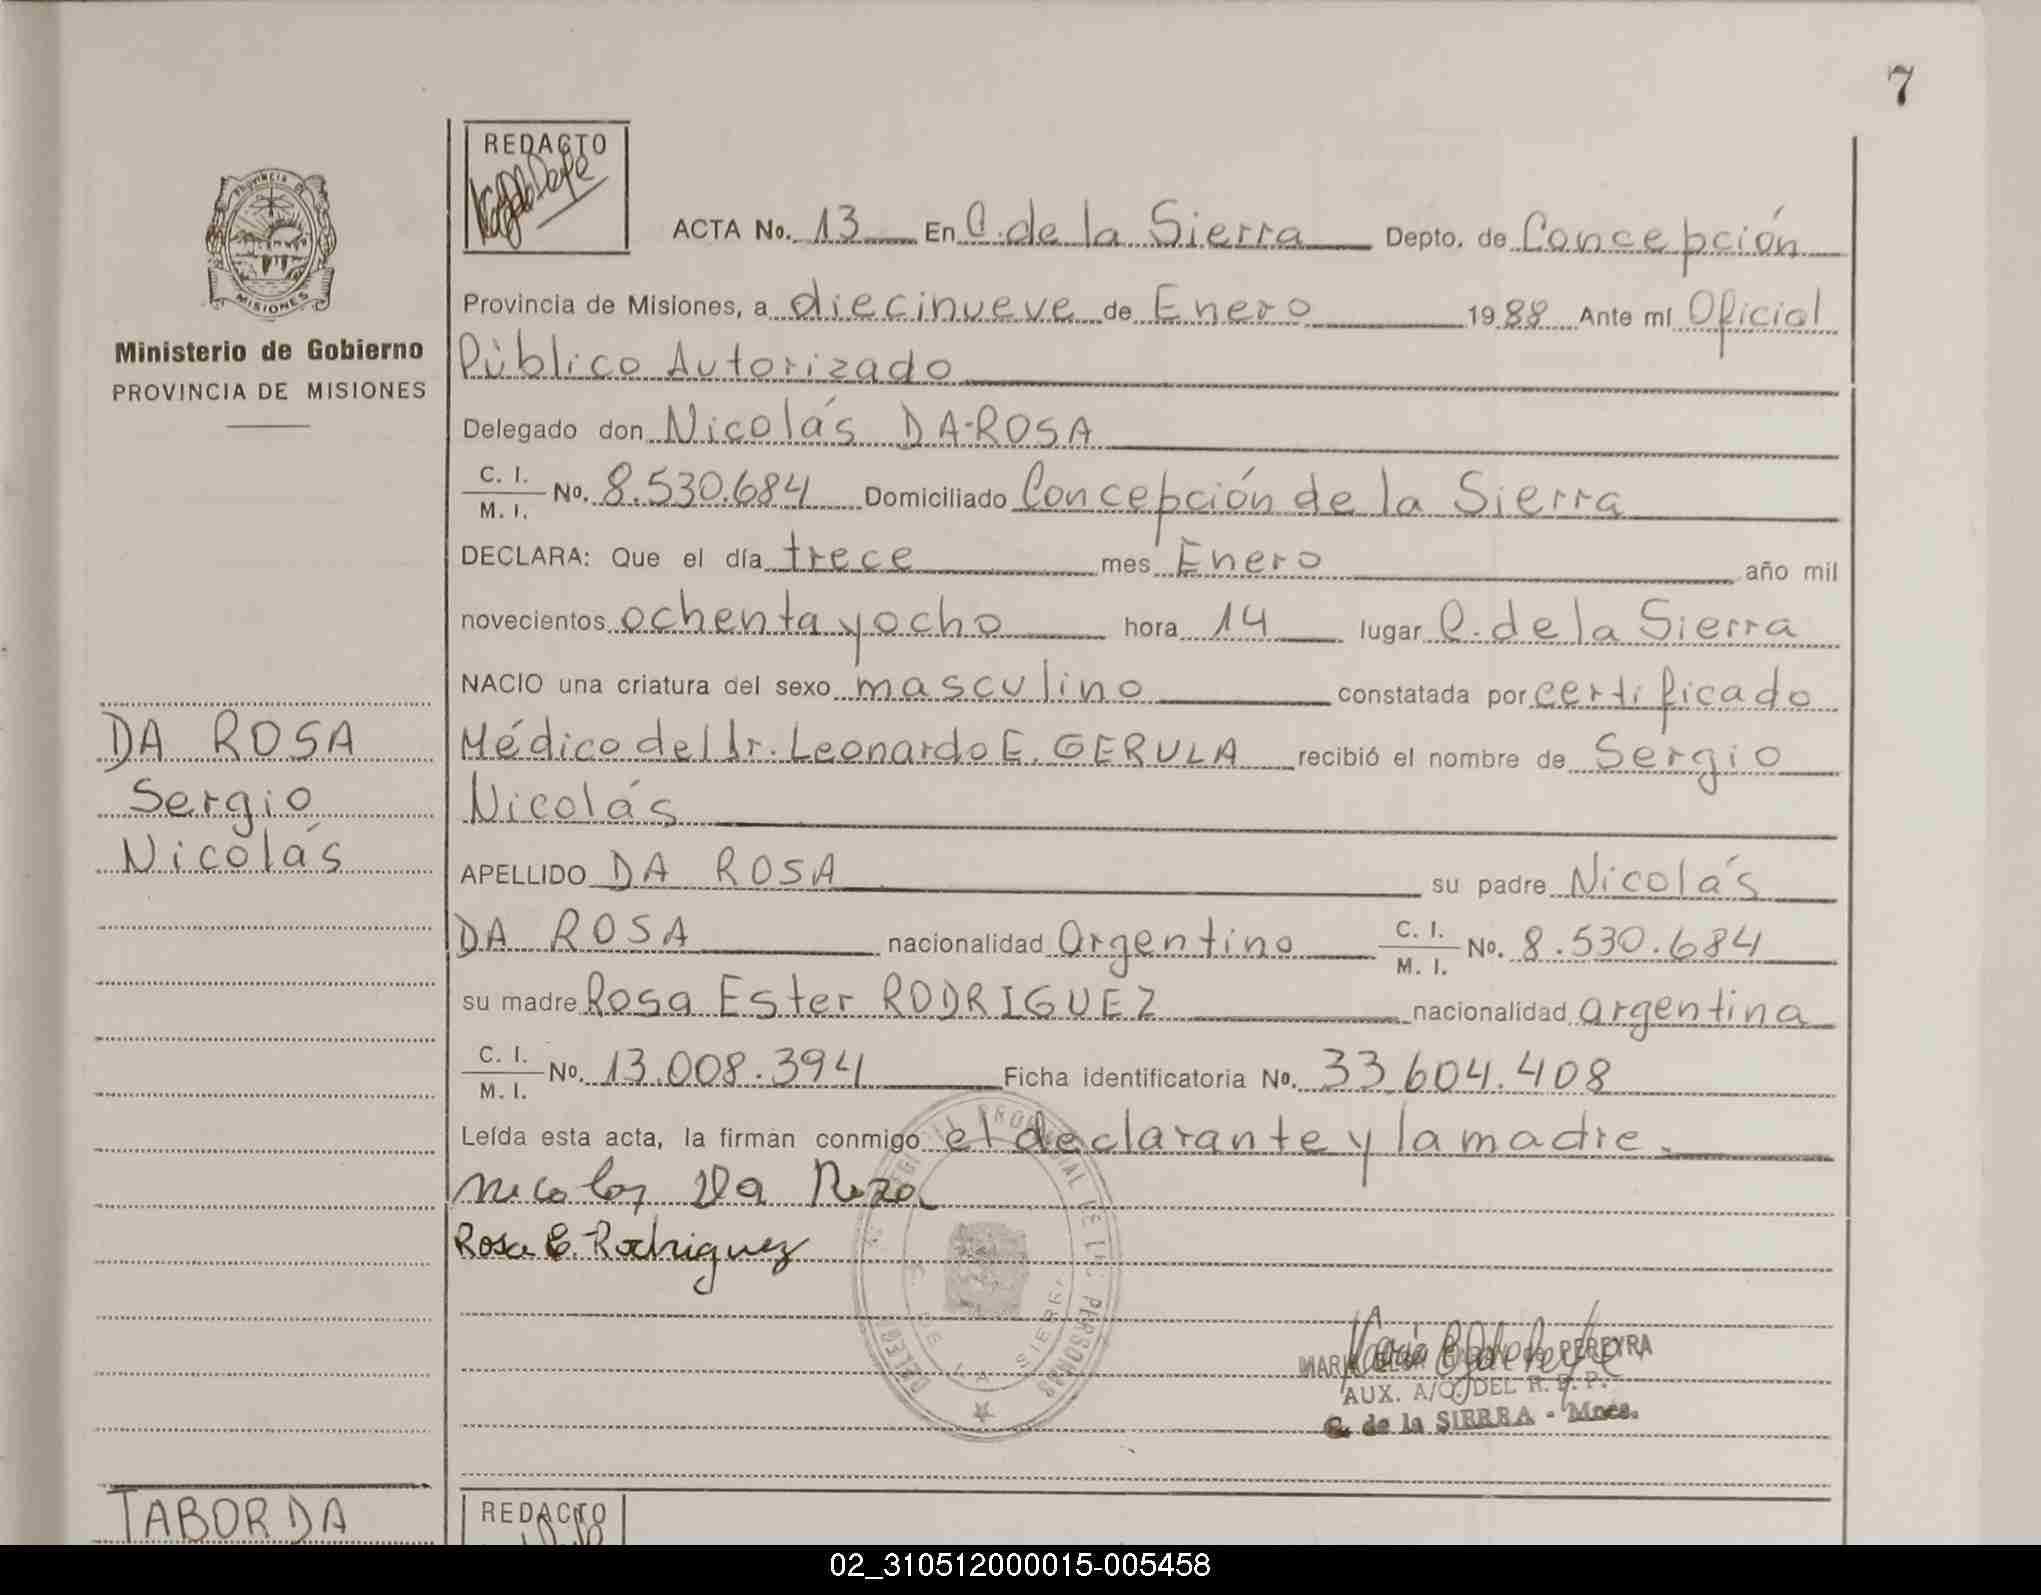 7
REDACTO
Provincia de
MISIONES
Ministerio de Gobierno
PROVINCIA DE MISIONES
ACTA No. 13 En C. de la Sierra Depto. de Concepción
Provincia de Misiones, a diecinueve de Enero 1988 Ante mí Oficial
Público Autorizado
Delegado don Nicolás DA-ROSA
C. I.
M. I. No. 8.530.684 Domiciliado Concepción de la Sierra
DECLARA: Que el día trece mes Enero año mil
novecientos ochenta y ocho hora 14 lugar C. de la Sierra
NACIO una criatura del sexo masculino constatada por certificado
Médico del Dr. Leonardo E. GERULA recibió el nombre de Sergio
Nicolás
APELLIDO DA ROSA su padre Nicolás
DA ROSA nacionalidad argentino C. I.
M. I. No. 8.530.684
su madre Rosa Ester RODRIGUEZ nacionalidad argentina
C. I.
M. I. No. 13.008.394 Ficha identificatoria No. 33.604.408
Leída esta acta, la firman conmigo el declarante y la madre.
Nicolas Da Roza
Rosa E. Rodriguez
DA ROSA
Sergio
Nicolás
PEREYRA
AUX. A/C. DEL R. P. P.
C. de la SIERRA - Mnes.
TABORDA
REDACTO
02_310512000015-005458